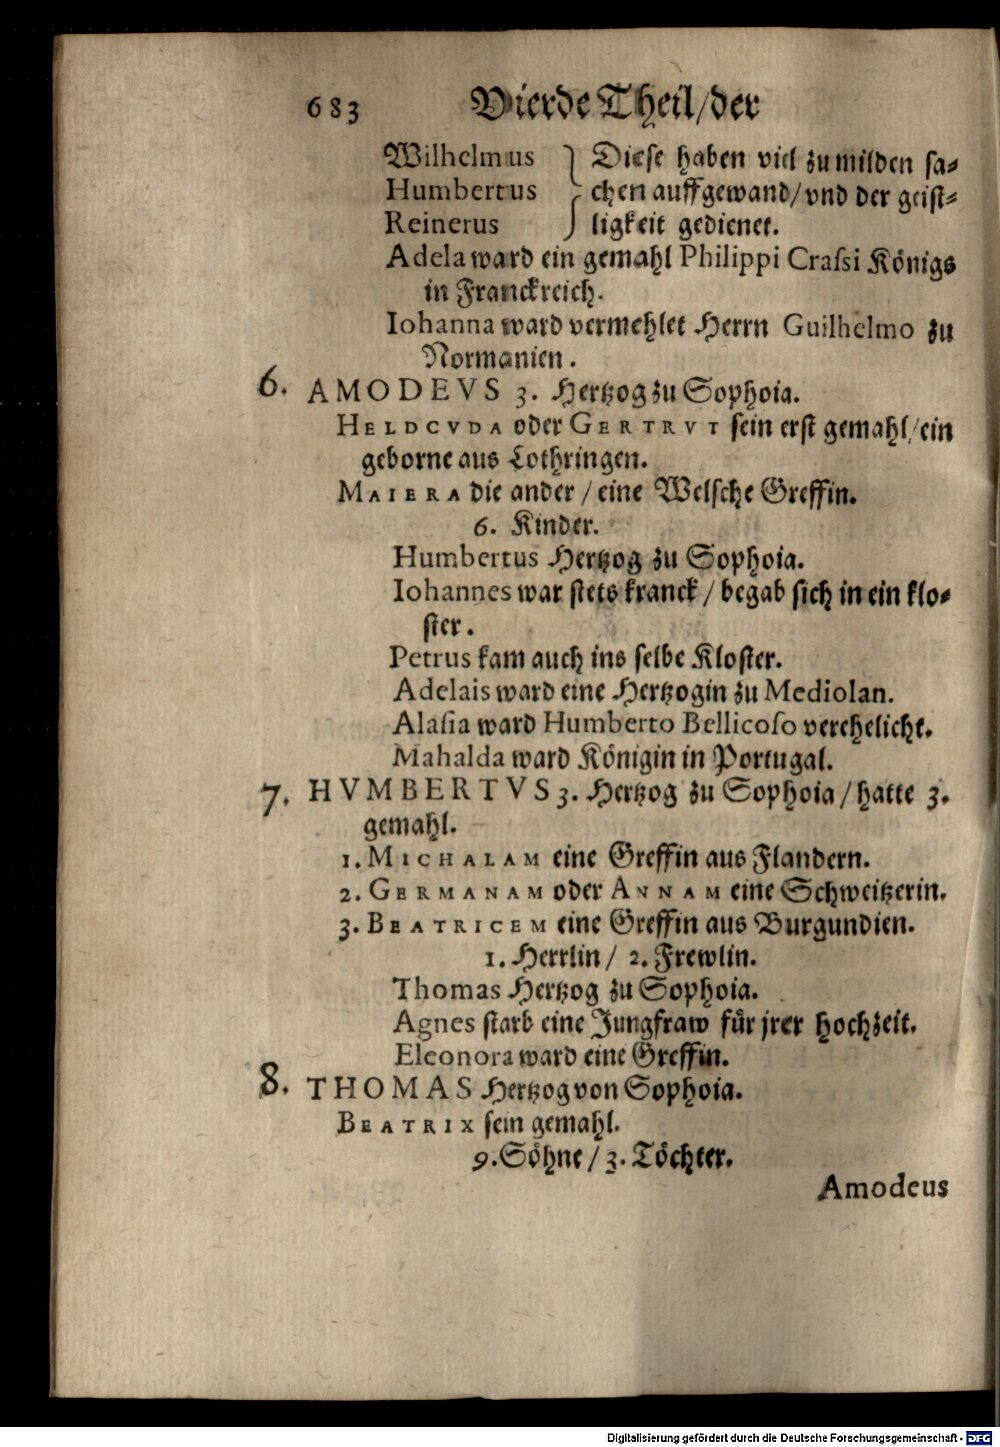 683 Vierde Theil/der
Wilhelmus } Diese haben viel zu milden sa⸗
Humbertus } chen auffgewand/vnd der geist⸗
Reinerus } ligkeit gedienet.
Adela ward ein gemahl Philippi Crassi Königs
in Franckreich.
Iohanna ward vermehlet Herrn Guilhelmo zu
Normanien.
6. AMODEVS 3. Hertzog zu Sophoia.
HELDCVDA oder GERTRVT sein erst gemahl/ein
geborne aus Lothringen.
MAIERA die ander/eine Welsche Greffin.
6. Kinder.
Humbertus Hertzog zu Sophoia.
Iohannes war stets kranck/begab sich in ein klo⸗
ster.
Petrus kam auch ins selbe Kloster.
Adelais ward eine Hertzogin zu Mediolan.
Alasia ward Humberto Bellicoso verehelicht.
Mahalda ward Königin in Portugal.
7. HVMBERTVS 3. Hertzog zu Sophoia/hatte 3.
gemahl.
1. MICHALAM eine Greffin aus Flandern.
2. GERMANAM oder ANNAM eine Schweitzerin.
3. BEATRICEM eine Greffin aus Burgundien.
1. Herrlin/ 2. Frewlin.
Thomas Hertzog zu Sophoia.
Agnes starb eine Jungfraw für jrer hochzeit.
Eleonora ward eine Greffin.
8. THOMAS Hertzog von Sophoia.
BEATRIX sein gemahl.
9. Söhne/ 3. Töchter.
Amodeus
Digitalisierung gefördert durch die Deutsche Forschungsgemeinschaft - DFG